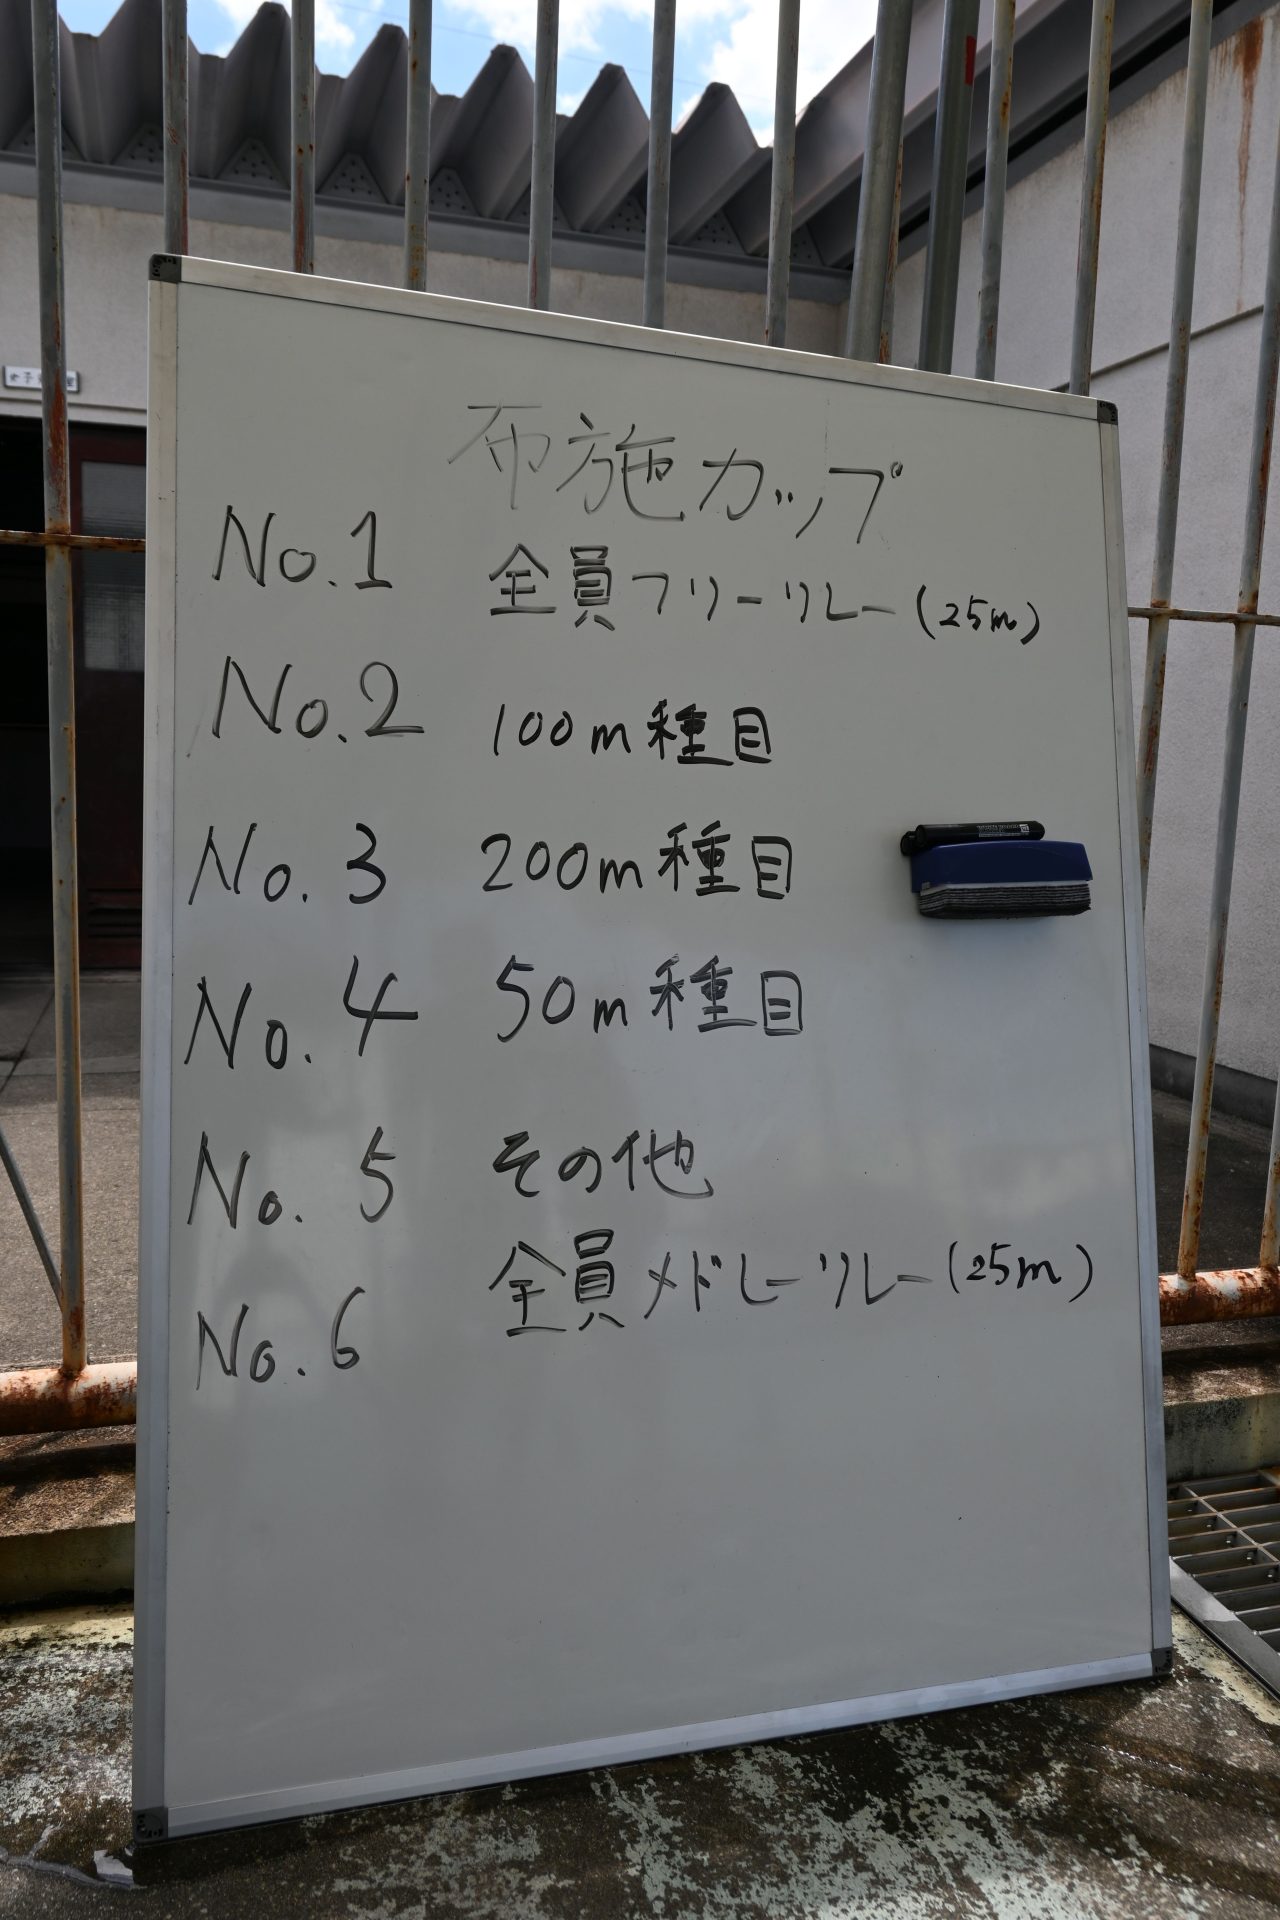 布施カップ
No.1 全員フリーリレー(25m)
No.2 100m種目
No.3 200m種目
No.4 50m種目
No.5 その他
No.6 全員メドレーリレー(25m)